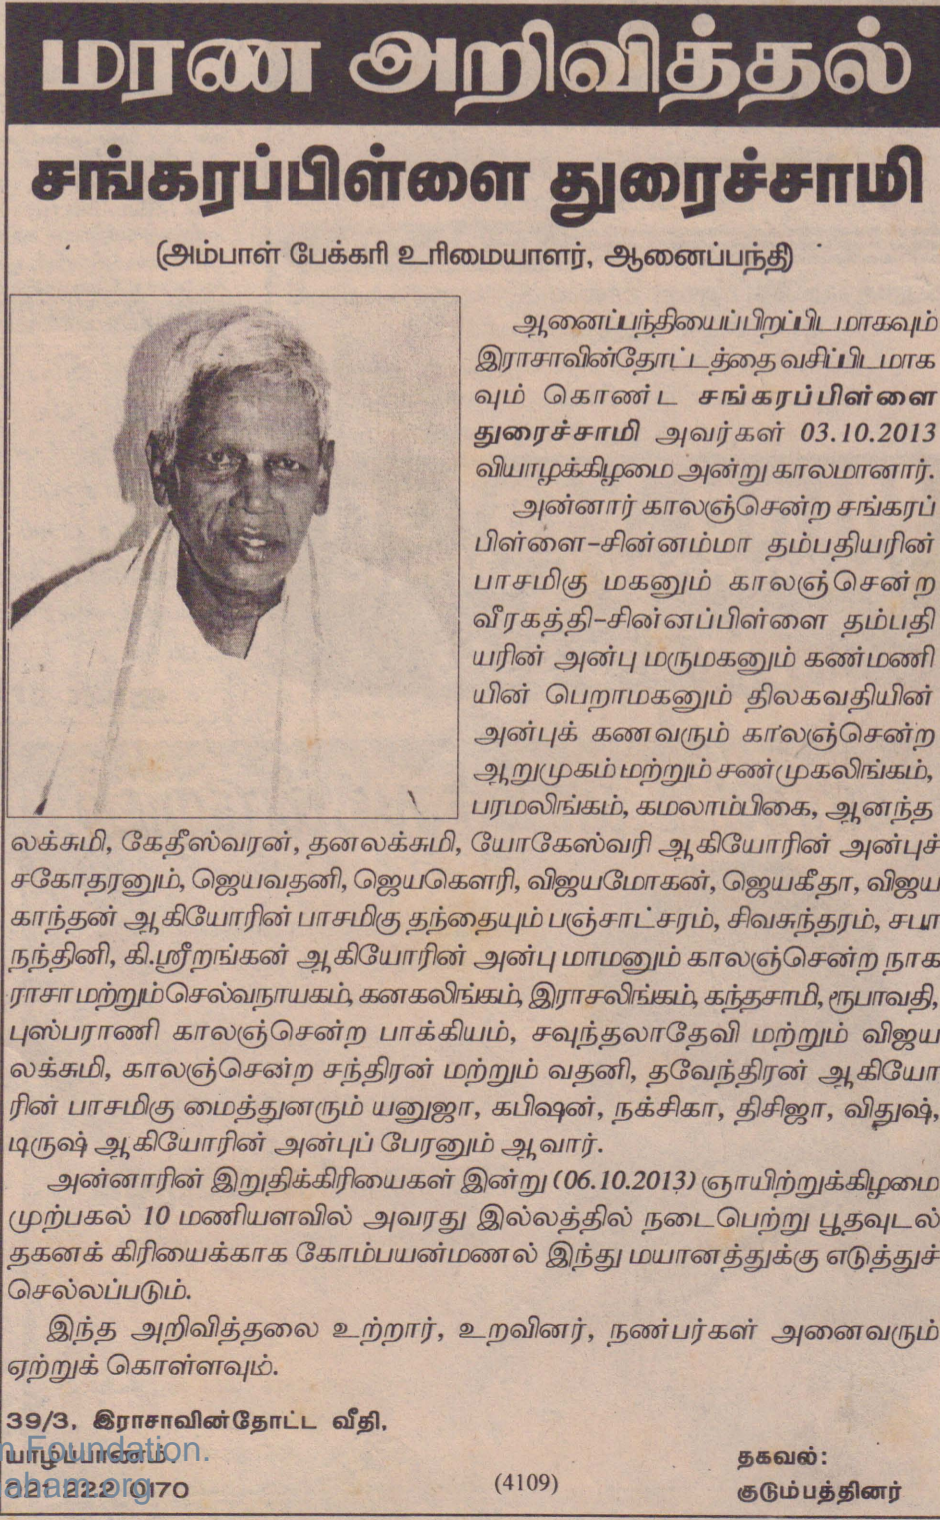 மரண அறிவித்தல்
சங்கரப்பிள்ளை துரைச்சாமி
(அம்பாள் பேக்கரி உரிமையாளர், ஆனைப்பந்தி)
ஆனைப்பந்தியைப்பிறப்பிடமாகவும்
இராசாவின்தோட்டத்தை வசிப்பிடமாக
வும் கொண்ட சங்கரப்பிள்ளை
துரைச்சாமி அவர்கள் 03.10.2013
வியாழக்கிழமை அன்று காலமானார்.
அன்னார் காலஞ்சென்ற சங்கரப்
பிள்ளை-சின்னம்மா தம்பதியரின்
பாசமிகு மகனும் காலஞ்சென்ற
வீரகத்தி-சின்னப்பிள்ளை தம்பதி
யரின் அன்பு மருமகனும் கண்மணி
யின் பெறாமகனும் திலகவதியின்
அன்புக் கணவரும் காலஞ்சென்ற
ஆறுமுகம் மற்றும் சண்முகலிங்கம்,
பரமலிங்கம், கமலாம்பிகை, ஆனந்த
லக்சுமி, கேதீஸ்வரன், தனலக்சுமி, யோகேஸ்வரி ஆகியோரின் அன்புச்
சகோதரனும், ஜெயவதனி, ஜெயகௌரி, விஜயமோகன், ஜெயகீதா, விஜய
காந்தன் ஆகியோரின் பாசமிகு தந்தையும் பஞ்சாட்சரம், சிவசுந்தரம், சபா
நந்தினி, கி.ஸ்ரீறங்கன் ஆகியோரின் அன்பு மாமனும் காலஞ்சென்ற நாக
ராசா மற்றும் செல்வநாயகம், கனகலிங்கம், இராசலிங்கம், கந்தசாமி, ரூபாவதி,
புஸ்பராணி காலஞ்சென்ற பாக்கியம், சவுந்தலாதேவி மற்றும் விஜய
லக்சுமி, காலஞ்சென்ற சந்திரன் மற்றும் வதனி, தவேந்திரன் ஆகியோ
ரின் பாசமிகு மைத்துனரும் யனுஜா, கபிஷன், நக்சிகா, திசிஜா, விதுஷ்,
டிருஷ் ஆகியோரின் அன்புப் பேரனும் ஆவார்.
அன்னாரின் இறுதிக்கிரியைகள் இன்று (06.10.2013) ஞாயிற்றுக்கிழமை
முற்பகல் 10 மணியளவில் அவரது இல்லத்தில் நடைபெற்று பூதவுடல்
தகனக் கிரியைக்காக கோம்பயன்மணல் இந்து மயானத்துக்கு எடுத்துச்
செல்லப்படும்.
இந்த அறிவித்தலை உற்றார், உறவினர், நண்பர்கள் அனைவரும்
ஏற்றுக் கொள்ளவும்.
39/3, இராசாவின்தோட்ட வீதி,
யாழ்ப்பாணம்.
021 222 0170
n Foundation.
aham.org
(4109)
தகவல்:
குடும்பத்தினர்